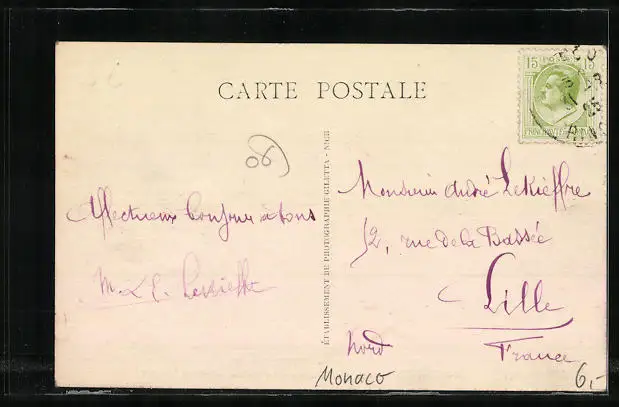 CARTE POSTALE
15 15
PRINCIPAUTÉ
25
90
Affectueux bonjour à tous
M. & C.
ÉTABLISSEMENT DE PHOTOGRAPHIE GILETTA - NICE
Monsieur André Lekieffre
12, rue de la Bassée
Lille
Nord
France
Monaco
6,-